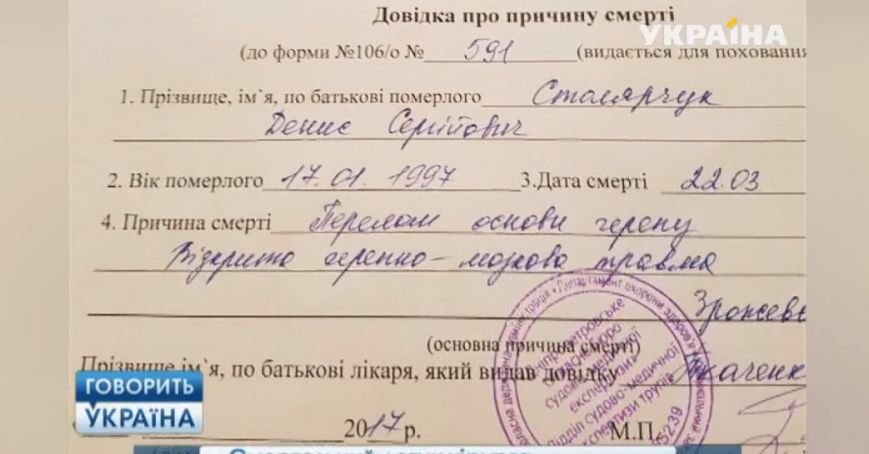 Довідка про причину смерті
УКРАЇНА
(до форми №106/о № 591 (видається для поховання
1. Прізвище, ім`я, по батькові померлого Столярчук
Денис Сергійович
2. Вік померлого 17.01.1997 3.Дата смерті 22.03
4. Причина смерті Перелом основи черепу
Відкрита черепно-мозкова травма
(основна причина смерті)
Прізвище, ім`я, по батькові лікаря, який видав довідку Ткаченк
2017 р. М.П.
ГОВОРИТЬ
УКРАЇНА